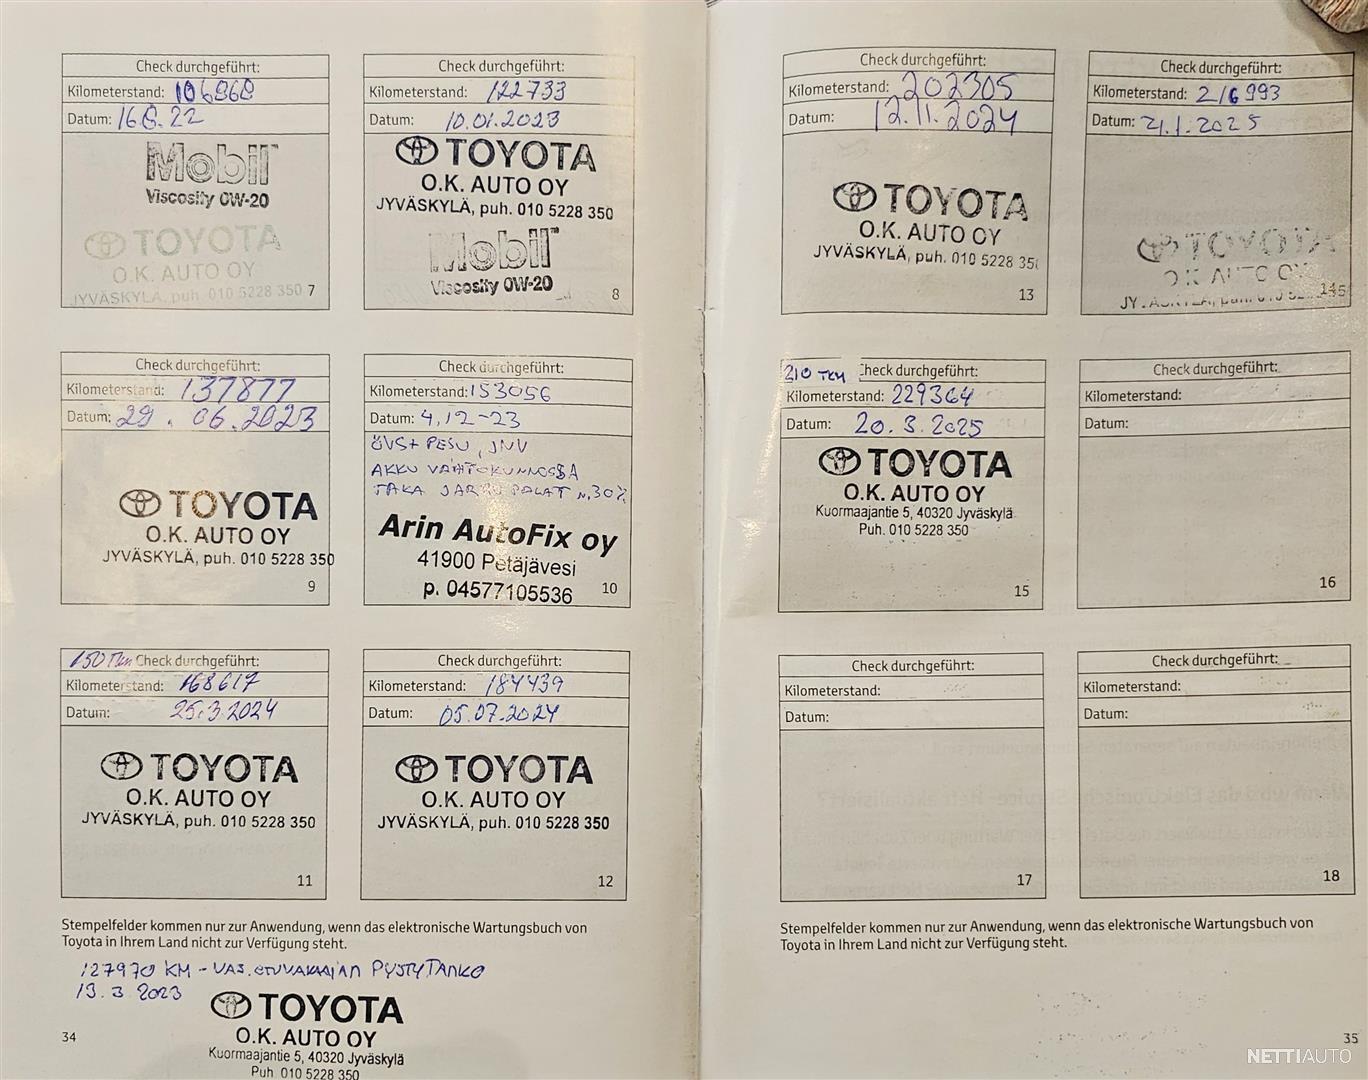 Check durchgeführt:
Kilometerstand: 106868
Datum: 16.8.22
Mobil
Viscosity 0W-20
TOYOTA
O.K. AUTO OY
JYVÄSKYLÄ, puh. 010 5228 350
7
Check durchgeführt:
Kilometerstand: 122733
Datum: 10.01.2023
TOYOTA
O.K. AUTO OY
JYVÄSKYLÄ, puh. 010 5228 350
Mobil
Viscosity 0W-20
8
Check durchgeführt:
Kilometerstand: 137877
Datum: 29.06.2023
TOYOTA
O.K. AUTO OY
JYVÄSKYLÄ, puh. 010 5228 350
9
Check durchgeführt:
Kilometerstand: 153056
Datum: 4.12-23
ÖVS+ PESU, JNV
AKKU VAIHTOKUNNOSSA
TAKA JARRUPALAT n.30%
Arin AutoFix oy
41900 Petäjävesi
p. 04577105536
10
150 Tkm Check durchgeführt:
Kilometerstand: 168617
Datum: 25.3.2024
TOYOTA
O.K. AUTO OY
JYVÄSKYLÄ, puh. 010 5228 350
11
Check durchgeführt:
Kilometerstand: 184439
Datum: 05.07.2024
TOYOTA
O.K. AUTO OY
JYVÄSKYLÄ, puh. 010 5228 350
12
Stempelfelder kommen nur zur Anwendung, wenn das elektronische Wartungsbuch von
Toyota in Ihrem Land nicht zur Verfügung steht.
127970 KM - VAS. ETUVAKAAJAN PYSTYTANKO
13.3.2023
TOYOTA
O.K. AUTO OY
Kuormaajantie 5, 40320 Jyväskylä
Puh 010 5228 350
34
Check durchgeführt:
Kilometerstand: 202305
Datum: 12.11.2024
TOYOTA
O.K. AUTO OY
JYVÄSKYLÄ, puh. 010 5228 35
13
Check durchgeführt:
Kilometerstand: 216993
Datum: 21.1.2025
TOYOTA
O.K. AUTO OY
14
210 TKM Check durchgeführt:
Kilometerstand: 229364
Datum: 20.3.2025
TOYOTA
O.K. AUTO OY
Kuormaajantie 5, 40320 Jyväskylä
Puh. 010 5228 350
15
Check durchgeführt:
Kilometerstand:
Datum:
16
Check durchgeführt:
Kilometerstand:
Datum:
17
Check durchgeführt:
Kilometerstand:
Datum:
18
Stempelfelder kommen nur zur Anwendung, wenn das elektronische Wartungsbuch von
Toyota in Ihrem Land nicht zur Verfügung steht.
35
NETTIAUTO